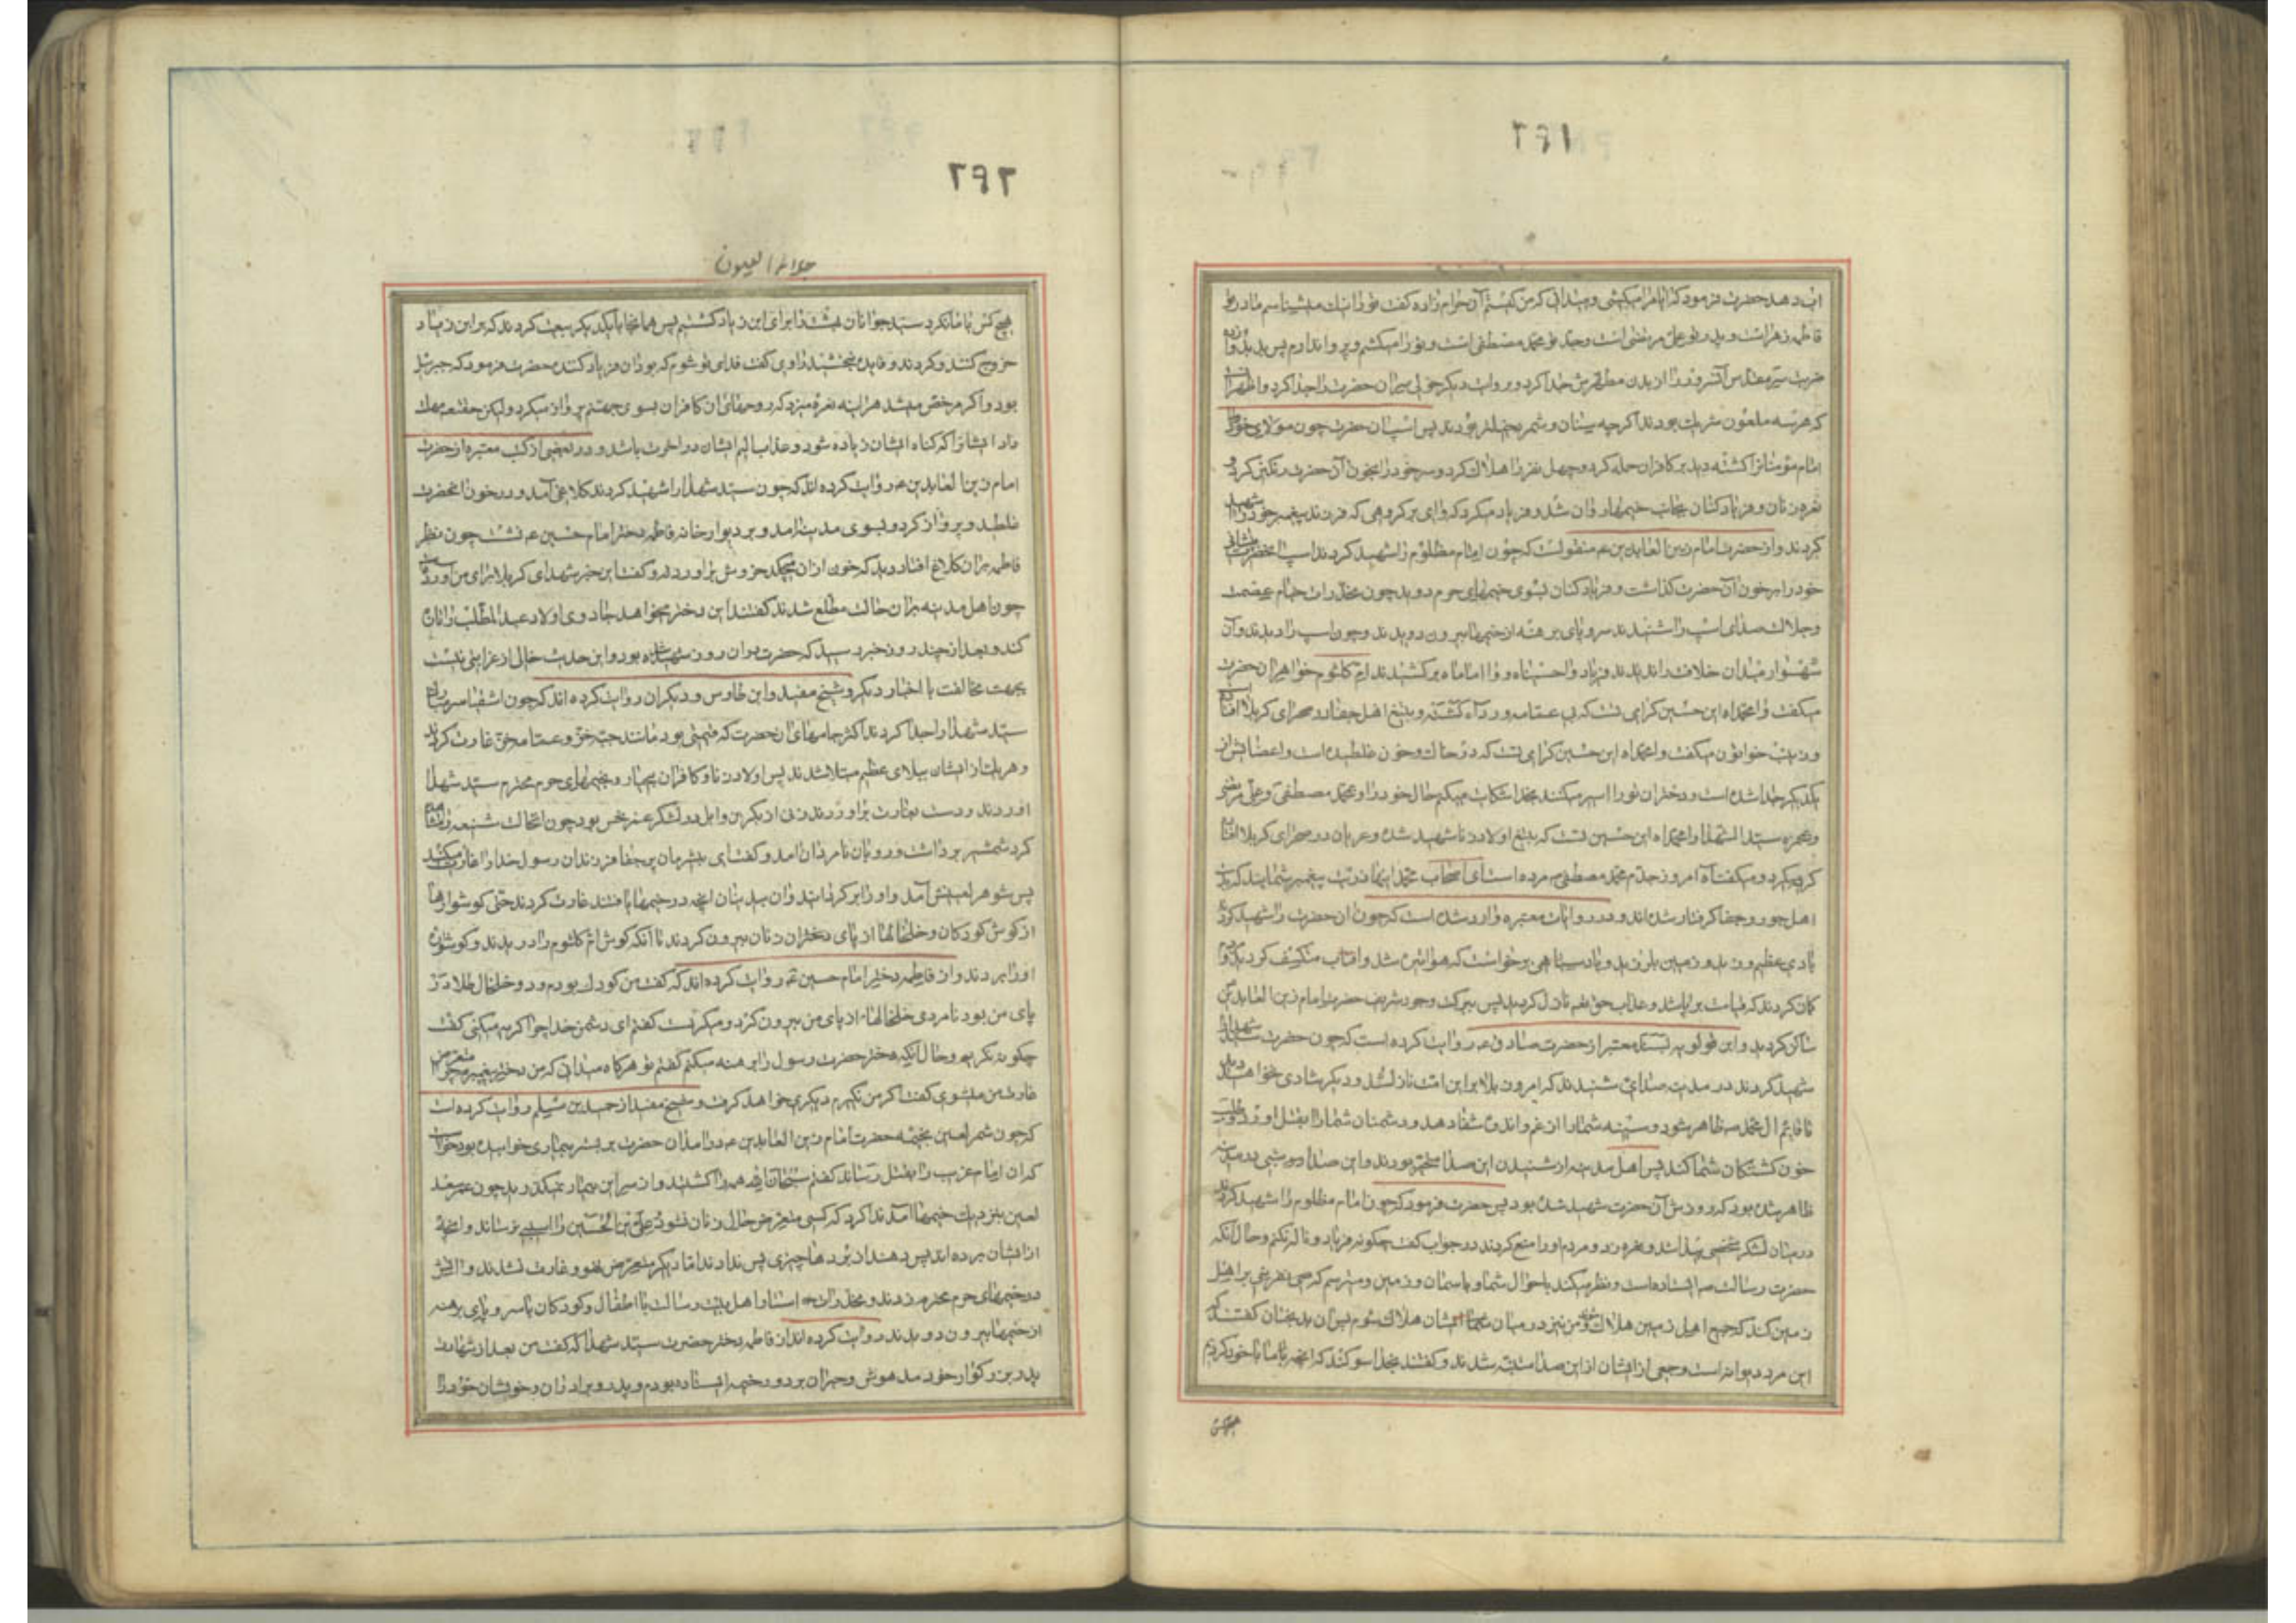 ۲۹۱
آب دهد حضرت فرمود که آیا مرا میکشی و میدانی که من کیستم آن حرام زاده گفت تو را نیک میشناسم مادر تو
فاطمه زهراست و پدر تو علی مرتضی است و جد تو محمد مصطفی است و تو را میکشم و پروا ندارم پس
ضربت سر مقدس آنسرور را از بدن مطهرش جدا کرد و بروایت دیگر خولی سر آن حضرت را جدا کرد و اظهر آنست
که هر سه ملعون شریک بودند اگرچه سنان و شمر دخیلتر بودند پس اسب آن حضرت چون مولای خود را
امام مؤمنانرا کشته دید بر کافران حمله کرد و چهل نفر را هلاک کرد و سر خود را بخون آن حضرت رنگین کرد و
نعره زنان و فریاد کنان بجانب خیمها روان شد و فریاد میکرد که وای بر گروهی که فرزند پیغمبر خود را شهید
کردند و از حضرت امام زین العابدین ع منقولست که چون امام مظلوم را شهید کردند اسب آنحضرت پیشانی
خود را بر خون آن حضرت گذاشت و فریاد کنان بسوی خیمهای حرم دوید چون مخدرات خیام عصمت
و جلالت صدای اسب را شنیدند سر و پای برهنه از خیمها بیرون دویدند و چون اسب را دیدند و آن
شهسوار میدان خلافت را ندیدند فریاد واحسیناه و وا اماماه برکشیدند ام کلثوم خواهر آن حضرت
میگفت وا محمداه این حسین گرامی تست که بی عمامه و رداء گشته و بتیغ اهل جفا در صحرای کربلا افتاده است
و زینب خواتون میگفت وا محمداه این حسین گرامی تست که در خاک و خون غلطیده است و اعضایش از
یکدیگر جدا شده است و دختران تو را اسیر میکنند بخدا شکایت میکنم حال خود را و محمد مصطفی و علی مرتضی
و حمزه سید الشهدا وا محمداه این حسین تست که بتیغ اولاد زنا شهید شده و عریان در صحرای کربلا افتاده
گریه میکرد و میگفت آه امروز جدم محمد مصطفی ص مرده است ای اصحاب محمد اینها ذریت پیغمبر شمایند که بدست
اهل جور و جفا گرفتار شده اند و در روایات معتبره وارد شده است که چون آن حضرت را شهید کردند
بادی عظیم وزید و زمین بلرزید و باد سیاهی برخواست که هوا تیره شد و آفتاب منکسف گردید
گمان کردند که قیامت برپا شد و عذاب حق تعالی نازل گردید پس ببرکت وجود شریف حضرت امام زین العابدین
ساکن گردید و ابن قولویه بسند معتبر از حضرت صادق ع روایت کرده است که چون حضرت سید شهدا را
شهید کردند در مدینه صدائی شنیدند که امروز بلا بر این امت نازل شد و دیگر شادی نخواهند دید
تا قایم آل محمد ص ظاهر شود و سینه شما را از غم و اندوه شفا دهد و دشمنان شما را بقتل آورد و طلب
خون کشتگان شما کند پس اهل مدینه از شنیدن این صدا متحیر بودند و این صدا در شبی در مدینه
ظاهر شده بود که روزش آن حضرت شهید شده بود پس حضرت فرمود که چون امام مظلوم را شهید کردند
در میان لشکر شخصی پیدا شد و نعره زد و مردم او را منع کردند در جواب گفت چگونه فریاد و ناله نکنم و حال آنکه
حضرت رسالت ص ایستاده است و نظر میکند باحوال شما و باسمان و زمین و میترسم که نفرینی بر اهل
زمین کند که جمیع اهل زمین هلاک شوند و من نیز در میان ایشان هلاک شوم پس آن بدبختان گفتند که
این مرد دیوانه است و جمعی از ایشان از این صدا متنبه شدند و گفتند بخدا سوگند که آنچه ما با خود کردیم
هیچکس
۲۹۲
جلاء العیون
هیچ کس با ما نکرد سید جوانان بهشت را برای ابن زیاد کشتیم پس همانجا با یکدیگر بیعت کردند که بر ابن زیاد
خروج کنند و کردند و فایده نبخشید راوی گفت فدای تو شوم که بود آن فریاد کننده حضرت فرمود که جبرئیل
بود و اگر مرخص میشد هر آینه نعره میزد که روحهای آن کافران بسوی جهنم پرواز میکرد ولیکن حقتعالی مهلت
داد ایشانرا که گناه ایشان زیاده شود و عذاب الیم ایشان در آخرت باشد و در بعضی از کتب معتبره از حضرت
امام زین العابدین ع روایت کرده اند که چون سید شهدا را شهید کردند کلاغی آمد و در خون آنحضرت
غلطید و پرواز کرد و بسوی مدینه آمد و بر دیوار خانه فاطمه دختر امام حسین ع نشست چون نظر
فاطمه بر آن کلاغ افتاد و دید که خون از آن میچکد خروش برآورد و گفت این خبر شهدای کربلا برای من آورده است
چون اهل مدینه بر آن حالت مطلع شدند گفتند این دختر میخواهد جادوی اولاد عبد المطلب را تازه
کند و بعد از چند روز خبر رسید که حضرت در آن روز شهید شده بود و این حدیث خالی از غرابتی نیست
بجهت مخالفت با اخبار دیگر و شیخ مفید و ابن طاوس و دیگران روایت کرده اند که چون اشقیا سر مبارک
سید شهدا را جدا کردند اکثر جامهای آن حضرت که قیمتی بود مانند جبه خز و عمامه خز غارت کردند
و هر یک از ایشان ببلای عظیم مبتلا شدند پس اولاد زنا و کافران بیحیا رو بخیمهای حرم محترم سید شهدا
آوردند و دست بغارت برآوردند زنی از بکر بن وایل در لشکر عمر نحس بود چون آنحالت شنیعه را مشاهده
کرد شمشیر برداشت و رو بآن نامردان آمد و گفت ای بیشرمان پر جفا فرزندان رسول خدا را غارت میکنند
پس شوهر لعینش آمد و او را برگردانید و آن بیدینان آنچه در خیمها یافتند غارت کردند حتی گوشوارها
از گوش کودکان و خلخالها از پای دختران و زنان بیرون کردند تا آنکه گوش ام کلثوم را دریدند و گوشواره
او را بردند و از فاطمه دختر امام حسین ع روایت کرده اند که گفت من کودک بودم و دو خلخال طلا در
پای من بود نامردی خلخالها از پای من بیرون کرد و میگریست گفتم ای دشمن خدا چرا گریه میکنی گفت
چگونه نگریم و حال آنکه دختر حضرت رسول را برهنه میکنم گفتم تو هرگاه میدانی که من دختر پیغمبرم چرا متعرض من
غارت من میشوی گفت اگر من نگیرم دیگری خواهد گرفت و شیخ مفید از حمید بن مسلم روایت کرده است
که چون شمر لعین بخیمه حضرت امام زین العابدین ع درآمد آن حضرت بر بستر بیماری خوابیده بود خواست
که آن امام غریب را بقتل رساند گفتم سبحان الله همه را کشتید و از سر این بیمار نمیگذرید چون عمر سعد
لعین بنزدیک خیمها آمد ندا کرد که کسی متعرض حال زنان نشود و علی بن الحسین را آسیبی نرساند و آنچه
از ایشان برده اند پس دهند از بردها چیزی پس ندادند اما دیگر متعرض نشدند و آتش
در خیمهای حرم محترم زدند و مخدرات استار اهل بیت رسالت با اطفال و کودکان با سر و پای برهنه
از خیمها بیرون دویدند روایت کرده اند از فاطمه دختر حضرت سید شهدا که گفت من بعد از شهادت
پدر بزرگوار خود مدهوش و حیران بر در خیمه ایستاده بودم و پدر و برادران و خویشان خود را